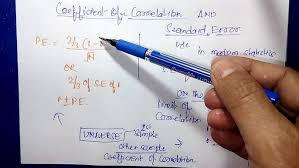 Coefficient of Correlation AND
Standard Error
P.E. = 2/3 (1-
√N
OR
2/3 of S.E of r
r ± P.E.
use in modern statistics
S.E
or the
limit of
Correlation
UNIVERSE
other sample
Coefficient of Correlation